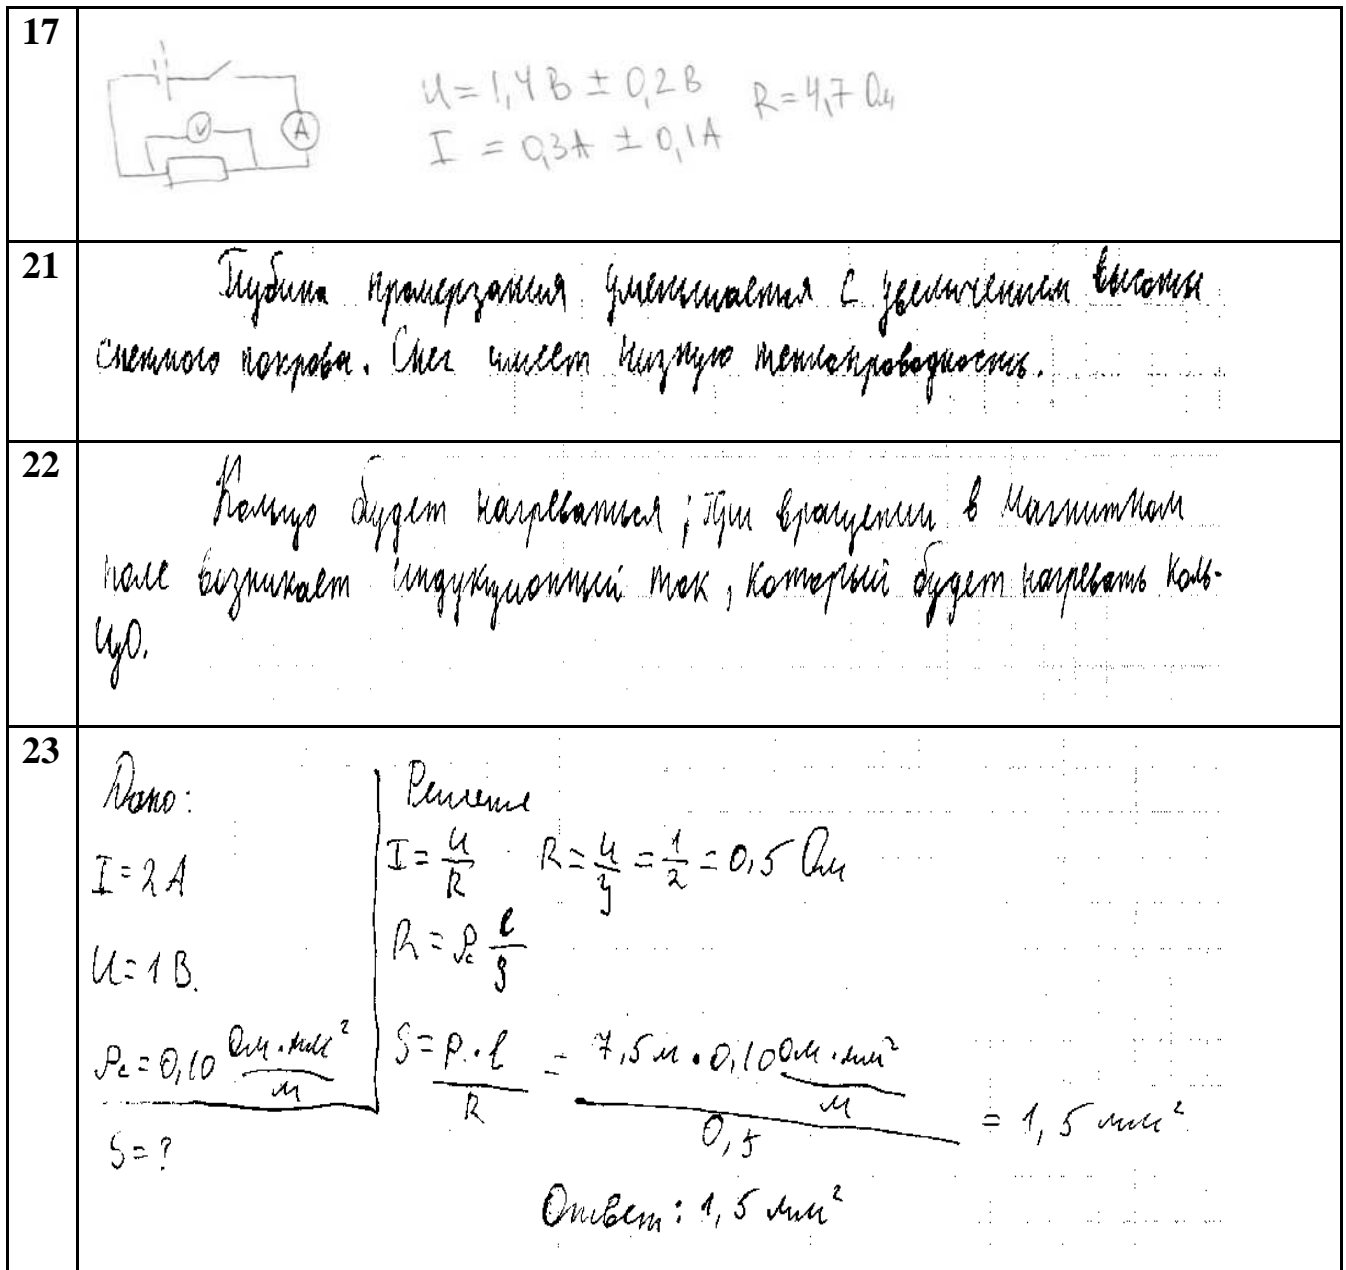 17
V
A
U = 1,4 В ± 0,2 В
I = 0,3 А ± 0,1 А
R = 4,7 Ом
21
Глубина промерзания уменьшается с увеличением высоты
снежного покрова. Снег имеет низкую теплопроводность.
22
Кольцо будет нагреваться; При вращении в магнитном
поле возникает индукционный ток, который будет нагревать коль-
цо.
23
Дано:
I = 2 А
U = 1 В.
ρс = 0,10 Ом·мм²/м
S = ?
Решение
I = U/R R = U/I = 1/2 = 0,5 Ом
R = ρс l/S
S = ρ·l/R = 7,5 м · 0,10 Ом·мм²/м / 0,5 = 1,5 мм²
Ответ: 1,5 мм²